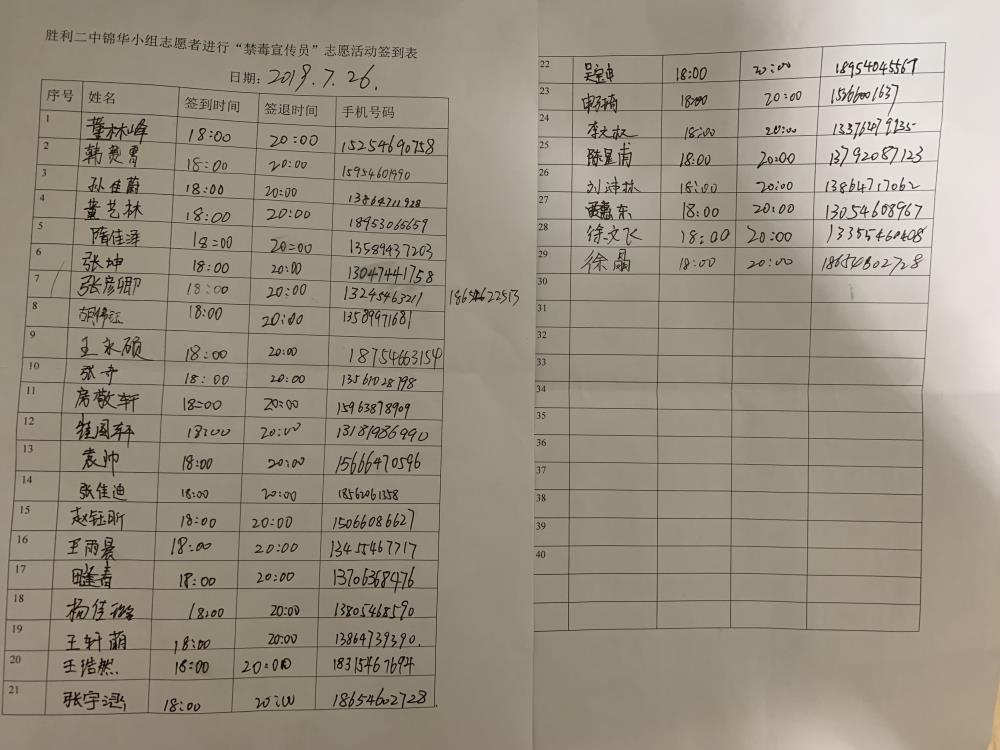 胜利二中锦华小组志愿者进行“禁毒宣传员”志愿活动签到表
日期：2019.7.26.
序号 姓名 签到时间 签退时间 手机号码
1 董林峰 18:00 20:00 15254690758
2 18:00 20:00 15954601990
3 孙佳蔚 18:00 20:00 13864711928
4 黄艺林 18:00 20:00 18953066659
5 隋佳泽 18:00 20:00 13589437203
6 张坤 18:00 20:00 13047441758
7 张彦卿 18:00 20:00 13245463211 18654622513
8 18:00 20:00 13589971681
9 王永硕 18:00 20:00 18754663154
10 张奇 18:00 20:00 13561028798
11 房敬轩 18:00 20:00 15963878909
12 18:00 20:00 13181986990
13 袁帅 18:00 20:00 15666470596
14 张佳迪 18:00 20:00 18562061358
15 赵钰昕 18:00 20:00 15066086627
16 王雨晨 18:00 20:00 13455467717
17 18:00 20:00 13706368476
18 18:00 20:00 13805468590
19 王轩萌 18:00 20:00 13864739390.
20 王浩然 18:00 20:00 18315467694
21 张宇涵 18:00 20:00 18654602728
22 18:00 20:00 18954045567
23 18:00 20:00 15366001637
24 18:00 20:00
25 18:00 20:00 13792087123
26 18:00 20:00 13864717062
27 18:00 20:00 13054608967
28 徐文飞 18:00 20:00 13355460408
29 徐晶 18:00 20:00 18654602728
30
31
32
33
34
35
36
37
38
39
40